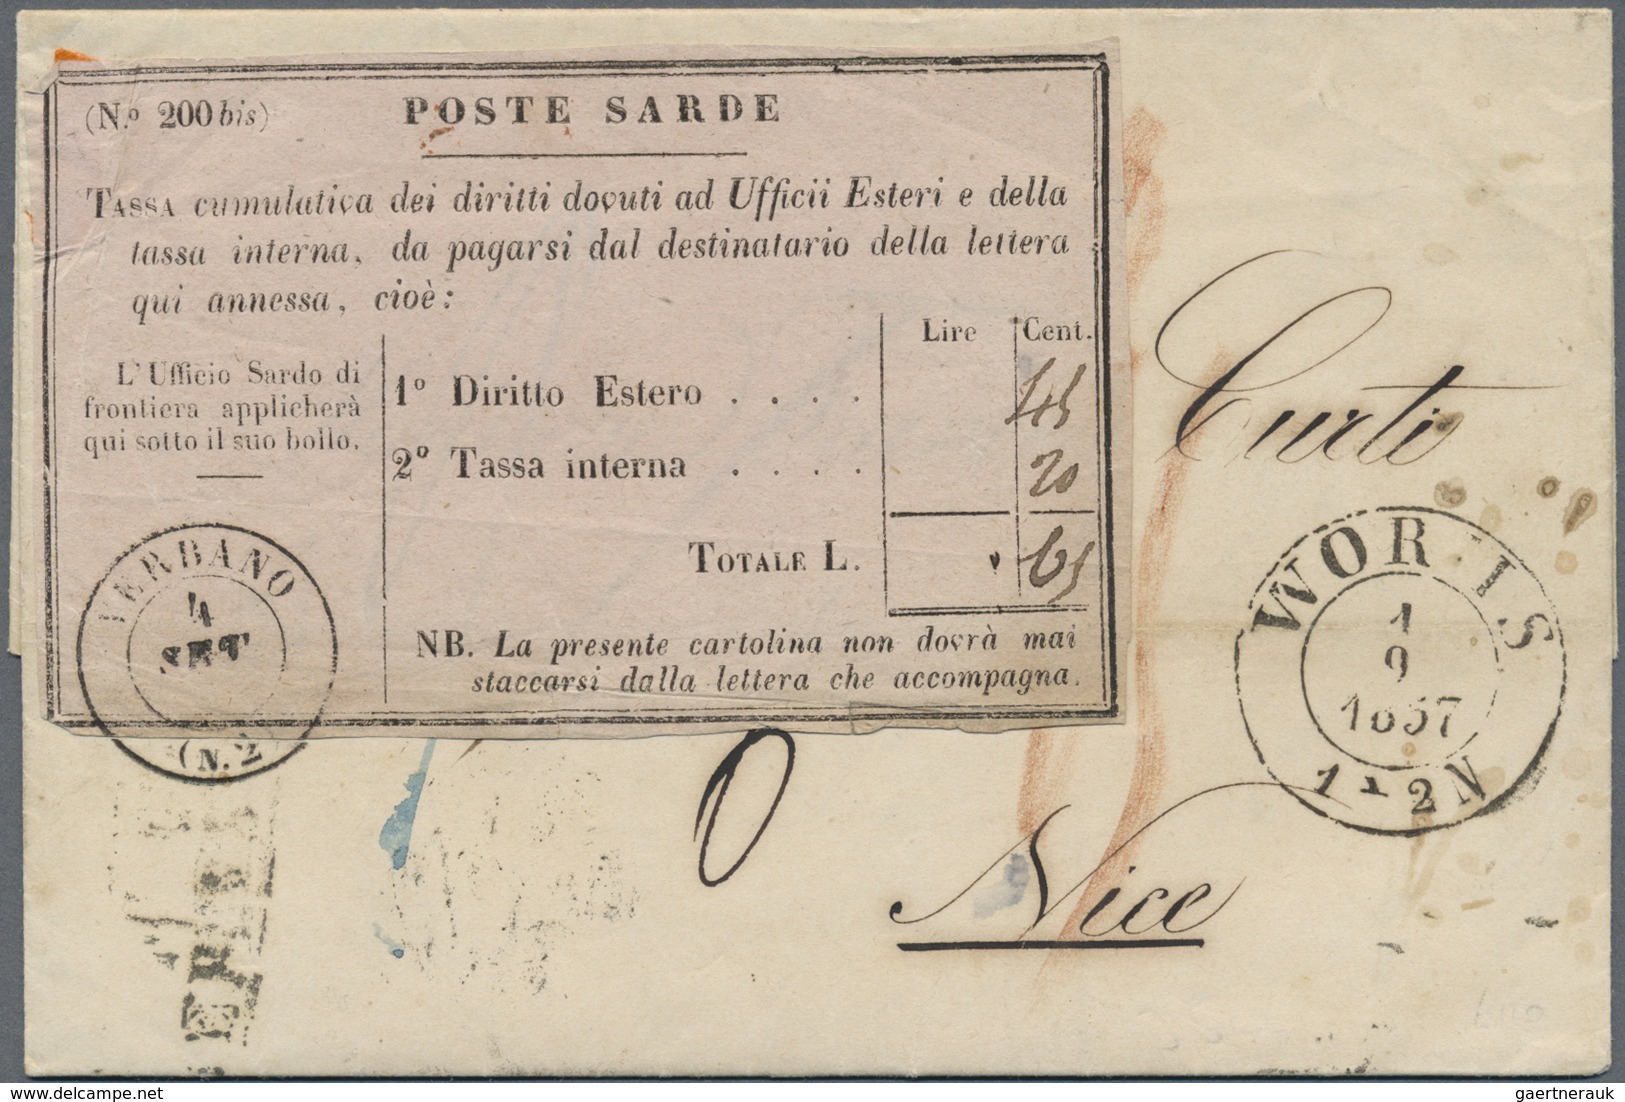 (N.º 200 bis) POSTE SARDE
TASSA cumulativa dei diritti dovuti ad Ufficii Esteri e della
tassa interna, da pagarsi dal destinatario della lettera
qui annessa, cioè:
Lire Cent.
L'Ufficio Sardo di
frontiera applicherà
qui sotto il suo bollo.
1º Diritto Estero . . . . 45
2º Tassa interna . . . . 20
TOTALE L. 65
NB. La presente cartolina non dovrà mai
staccarsi dalla lettera che accompagna.
VERBANO
4
SET
(N. 2
Curti
WOR IS
1
9
1857
1 2 N
Nice
gaertnerauk // delcampe.net